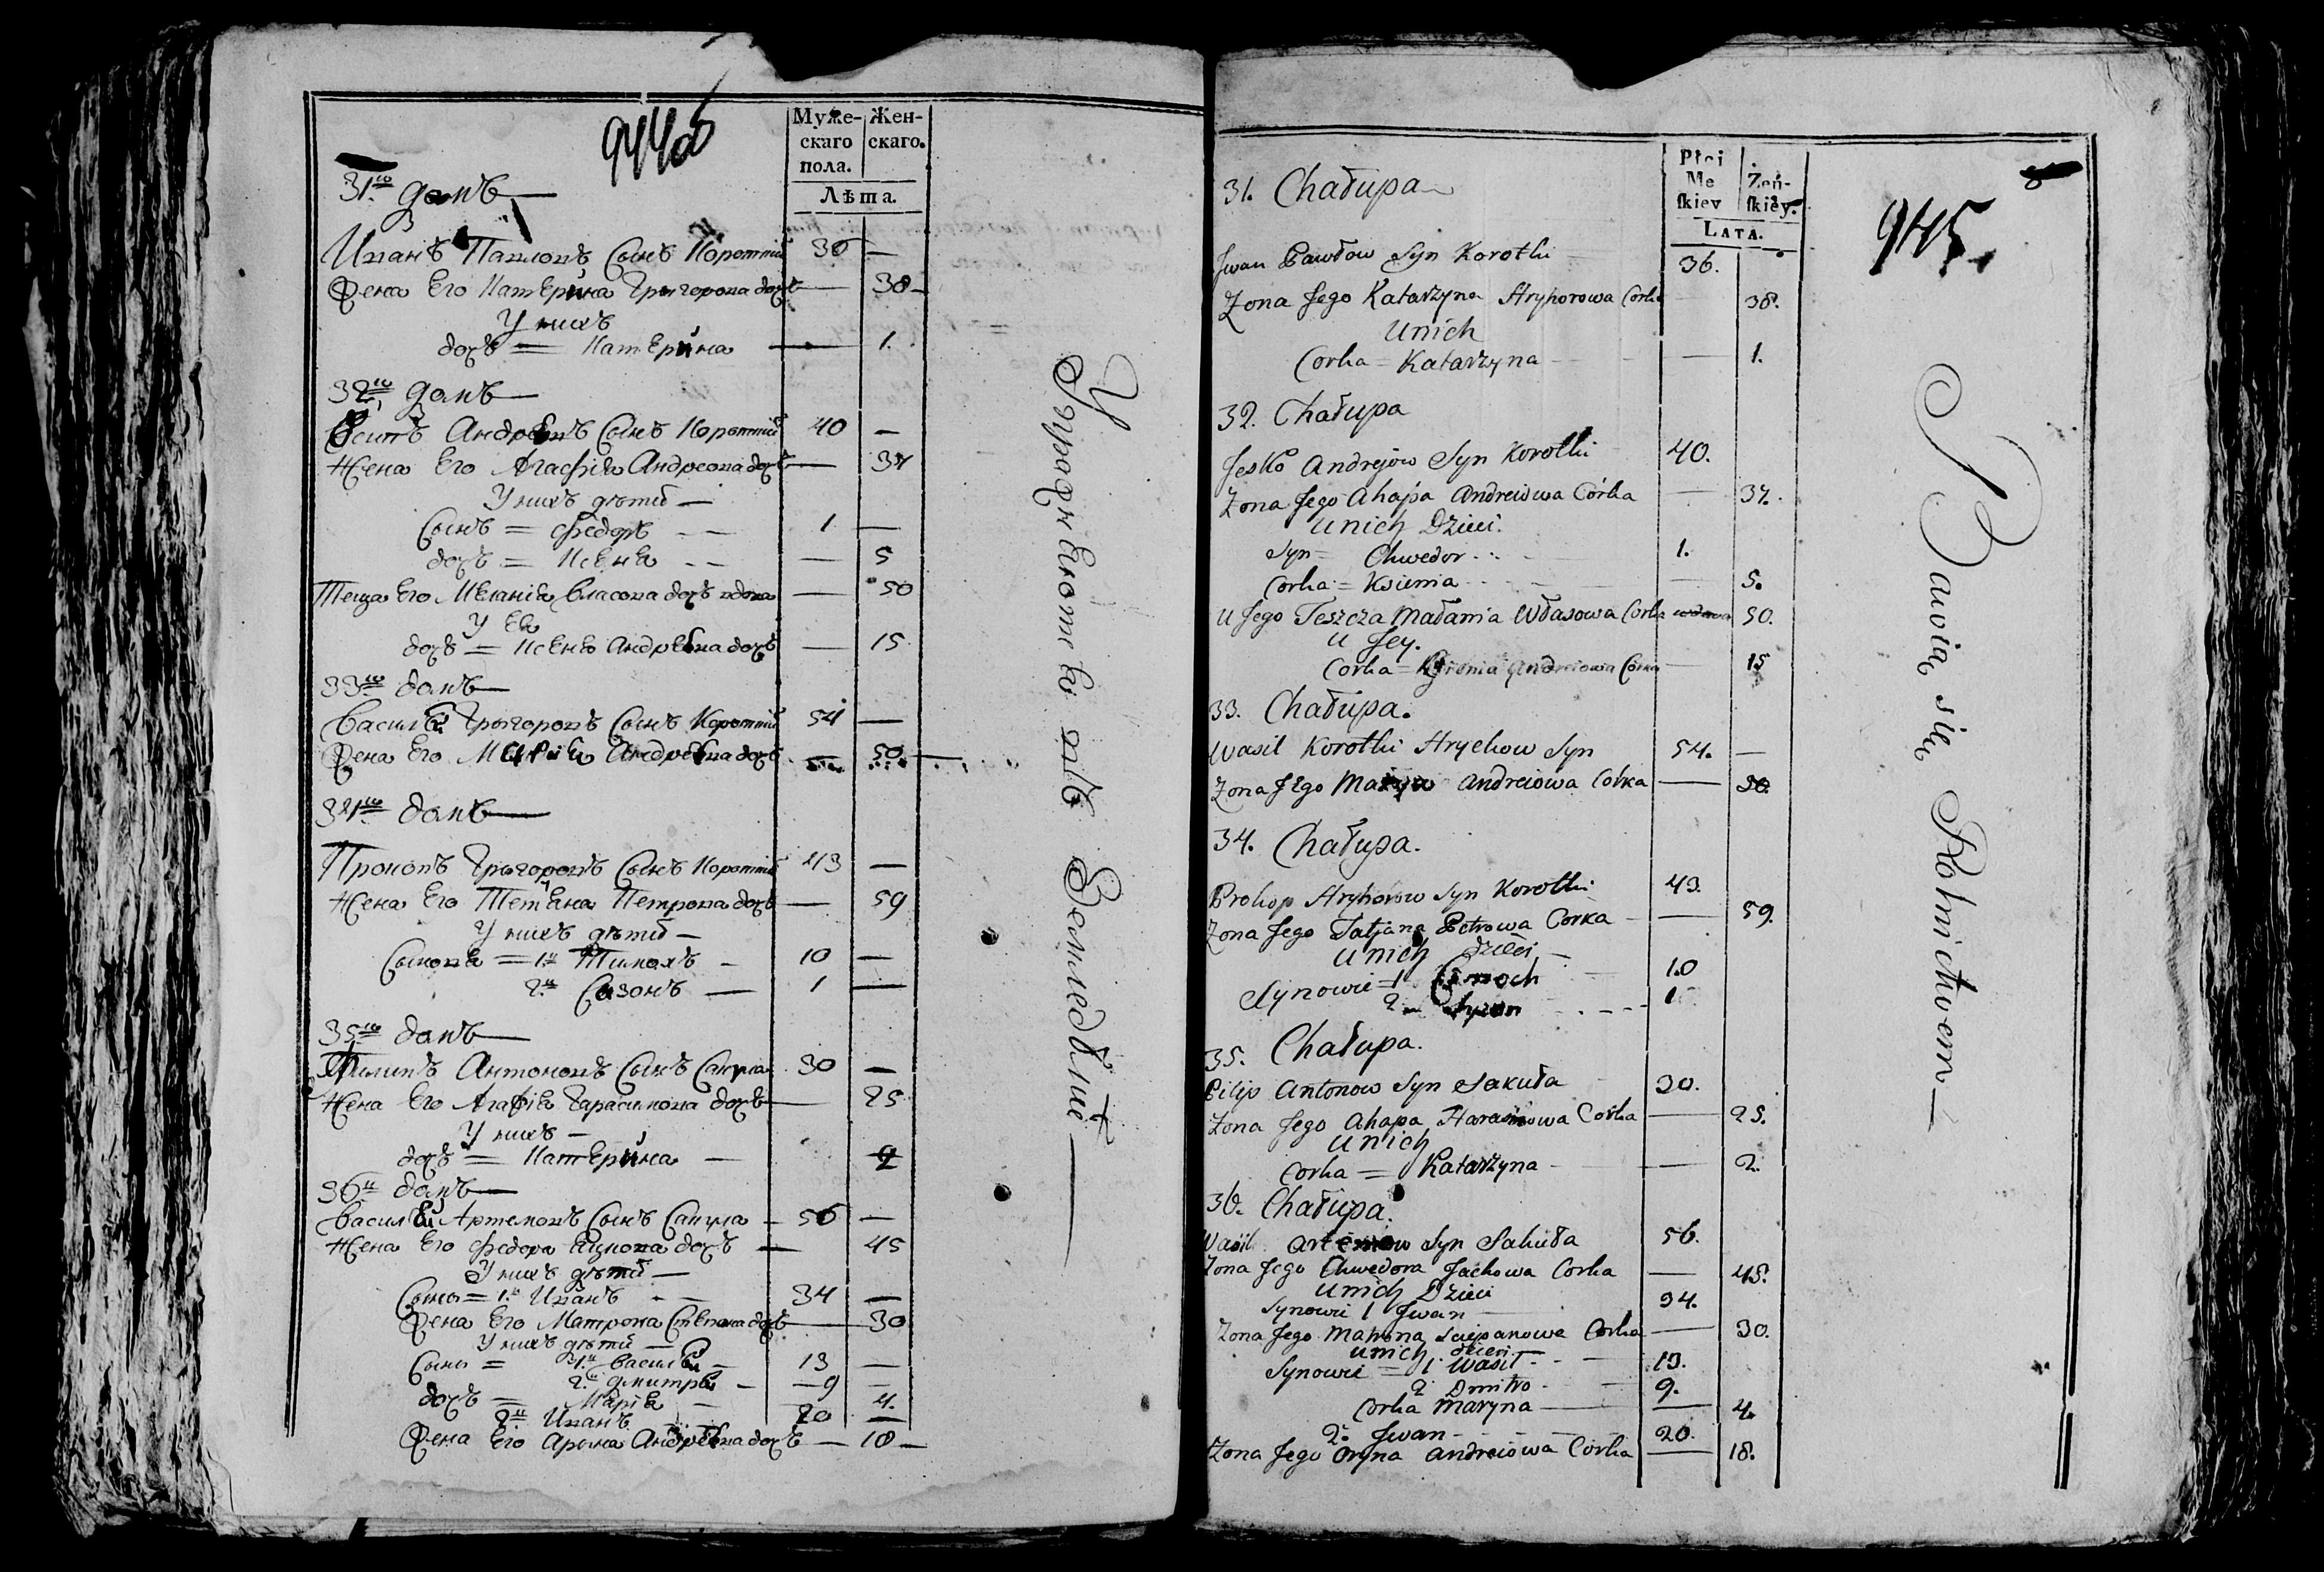 944об
Муже-
скаго
пола.
Жен-
скаго.
Лѣта.
31го домъ —
Иванъ Павловъ Сынъ Короткий 36 —
Жена Его Катерина Григорова дочь — 38 —
У нихъ
дочь = Катерина — 1.
32го домъ —
Андреевъ Сынъ Короткий 40 —
Жена Его Агафия Андреова дочь — 37
У нихъ дѣтей —
Сынъ = Федоръ 1 —
дочь = Ксеня — 5
Теща Его Мелания Власова дочь вдова — 50
У Ея
дочь = Ксеня Андреевна дочь — 15
33го домъ —
Василей Григоровъ Сынъ Короткий 54 —
Жена Его Мария Андреевна дочь — 50 —
34го домъ —
Прокопъ Григоровъ Сынъ Короткий 43 —
Жена Его Тетяна Петрова дочь — 59
У нихъ дѣтей —
Сыновя = 1й Тимохъ 10 —
2й Сазонъ — 1 —
35го домъ —
Филипъ Антоновъ Сынъ Сакула 30 —
Жена Его Агафия Гарасимова дочь — 25
У нихъ —
дочь = Катерина — 2
36й домъ —
Василей Артемовъ Сынъ Сакула — 56 —
Жена Его Федора Яцкова дочь — 45
У нихъ дѣтей —
Сыны = 1й Иванъ 34 —
Жена Его Матрона Степанова дочь — 30
У нихъ дѣтей —
Сыны = 1й Василей — 13 —
2й Дмитрей — 9 —
дочь = Мария — 4.
2й Иванъ 20 —
Жена Его Арина Андреевна дочь — 18 —
Упражняются въ Земледѣлии —
Płci
Me
ſkiey
Zeń-
ſkiey.
LATA.
945.
31. Chałupa
Iwan Pawłow Syn Korotki 36.
Zona Jego Katarzyna Hryhorowa Corka — 38.
Unich
Corka = Katarzyna — 1.
32. Chałupa
Jesko Andrejow Syn Korotki 40.
Zona Jego Ahapa Andreiowa Córka — 37.
Unich Dzieci.
Syn = Chwedor 1.
Corka = Ksienia — 5.
U Jego Teszcza Małania Własowa Corka wdowa 50.
U Jey.
Corka = Andreiowa Córka — 15
33. Chałupa.
Wasil Korotki Hryckow Syn 54. —
Zona Jego Maryia Andreiowa Corka — 50.
34. Chałupa.
Prokop Hryhorow Syn Korotki 43.
Zona Jego Tatjana Petrowa Corka — 59.
Unich Dzieci —
Synowie = 1 Cimoch 10
2 Syzon 1
35. Chałupa.
Pilip Antonow Syn Sakuła 30.
Zona Jego Ahapa Harasimowa Corka — 25.
Unich
Corka = Katarzyna — 2.
36. Chałupa.
Wasil Artemow Syn Sakuła 56.
Zona Jego Chwedora Jackowa Corka — 45.
Unich Dzieci
Synowie 1 Iwan 34.
Zona Jego Matrona Sciepanowa Corka — 30.
Unich Dzieci
Synowie = 1. Wasil 13.
2 Dmitro 9.
Corka Maryna — 4.
2. Iwan 20.
Zona Jego Oryna Andreiowa Corka — 18.
Bawią się Rolnictwem —